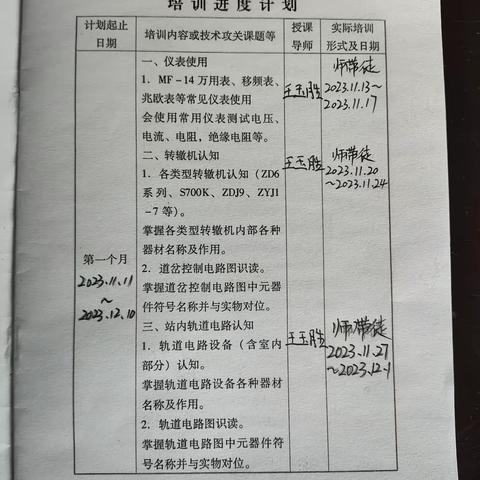 培训进度计划
计划起止
日期
培训内容或技术攻关课题等
授课
导师
实际培训
形式及日期
第一个月
2023.11.11
～
2023.12.10
一、仪表使用
1．MF-14万用表、移频表、
兆欧表等常见仪表使用
会使用常用仪表测试电压、
电流、电阻，绝缘电阻等。
王玉胜
师带徒
2023.11.13～
2023.11.17
二、转辙机认知
1．各类型转辙机认知（ZD6
系列、S700K、ZDJ9、ZYJ1
-7等）。
掌握各类型转辙机内部各种
器材名称及作用。
2．道岔控制电路图识读。
掌握道岔控制电路图中元器
件符号名称并与实物对位。
王玉胜
师带徒
2023.11.20
～2023.11.24
三、站内轨道电路认知
1．轨道电路设备（含室内
部分）认知。
掌握轨道电路设备各种器材
名称及作用。
2．轨道电路图识读。
掌握轨道电路图中元器件符
号名称并与实物对位。
王玉胜
师带徒
2023.11.27
～2023.12.1